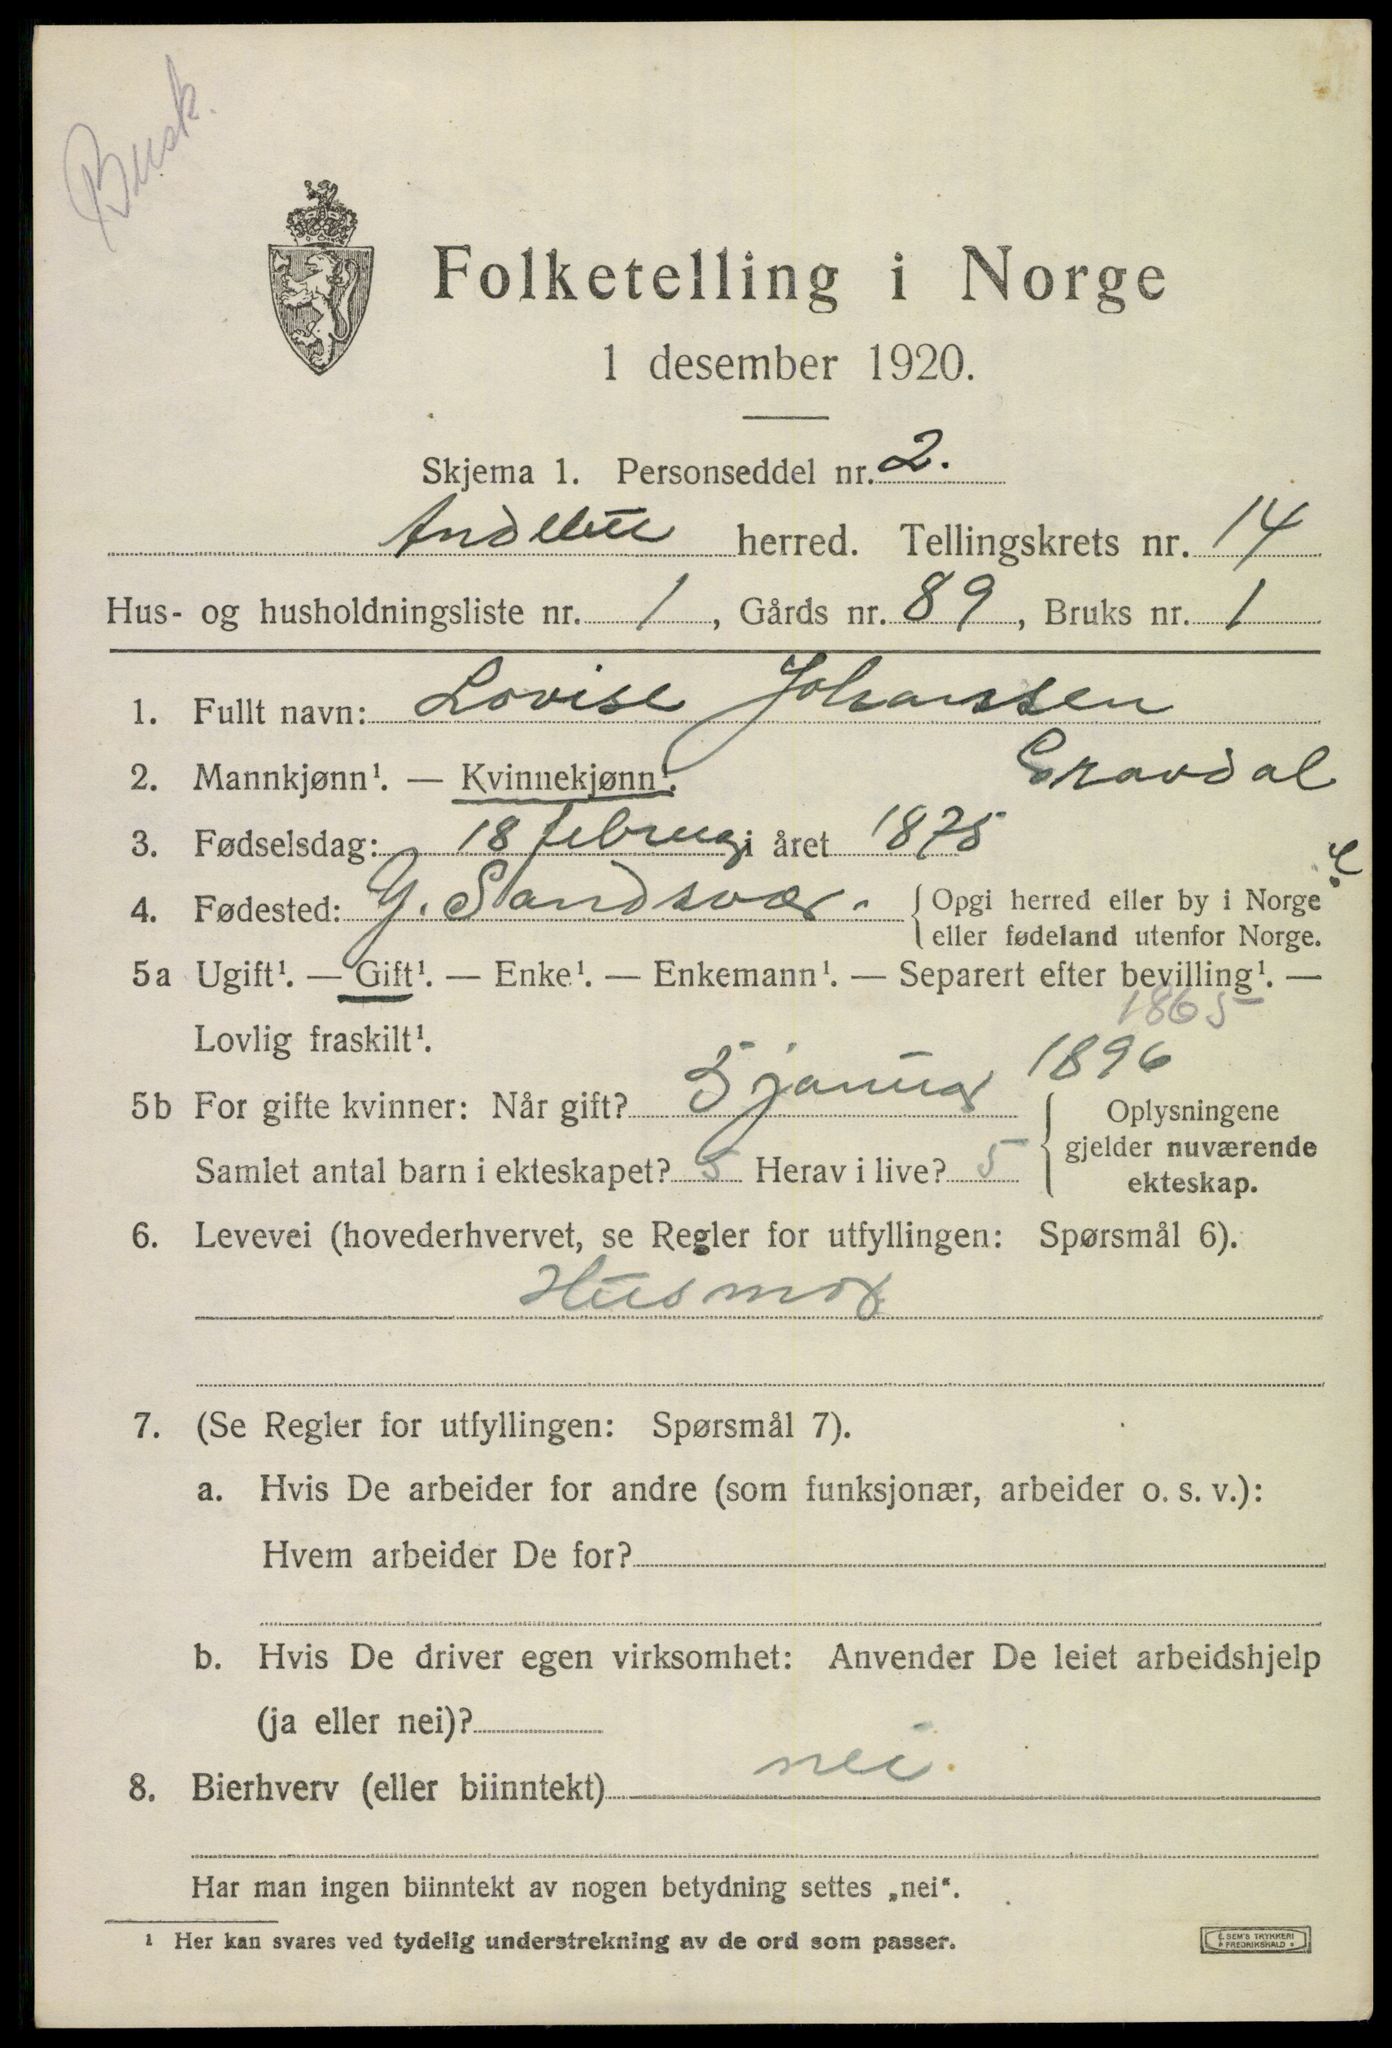 Busk.
Folketelling i Norge
1 desember 1920.
Skjema 1. Personseddel nr. 2.
Andebu herred. Tellingskrets nr. 14
Hus- og husholdningsliste nr. 1, Gårds nr. 89, Bruks nr. 1
1. Fullt navn: Lovise Johanssen
Gravdal
2. Mannkjønn¹. — Kvinnekjønn¹.
3. Fødselsdag: 18 februar i året 1875
4. Fødested: Y. Sandsvær. { Opgi herred eller by i Norge
eller fødeland utenfor Norge.
5a Ugift¹. — Gift¹. — Enke¹. — Enkemann¹. — Separert efter bevilling¹. —
1865
Lovlig fraskilt¹.
5b For gifte kvinner: Når gift? 5 januar 1896 { Oplysningene
gjelder nuværende
ekteskap.
Samlet antal barn i ekteskapet? 5 Herav i live? 5
6. Levevei (hovederhvervet, se Regler for utfyllingen: Spørsmål 6).
Husmor
7. (Se Regler for utfyllingen: Spørsmål 7).
a. Hvis De arbeider for andre (som funksjonær, arbeider o. s. v.):
Hvem arbeider De for?
b. Hvis De driver egen virksomhet: Anvender De leiet arbeidshjelp
(ja eller nei)?
8. Bierhverv (eller biinntekt) nei
Har man ingen biinntekt av nogen betydning settes „nei“.
¹ Her kan svares ved tydelig understrekning av de ord som passer.
E. SEM'S TRYKKERI
FREDRIKSHALD